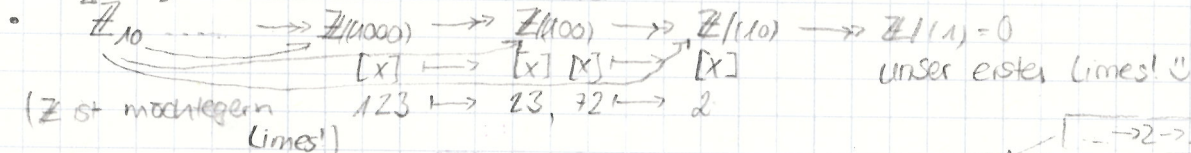 • ℤ₁₀ ...... ↠ ℤ/(1000) ↠ ℤ/(100) ↠ ℤ/(10) ↠ ℤ/(1) = 0
[x] ↦ [x] [x] ↦ [x] unser erster Limes! ☺
(ℤ ist möchtegern 123 ↦ 23, 72 ↦ 2
Limes!) ... →2→